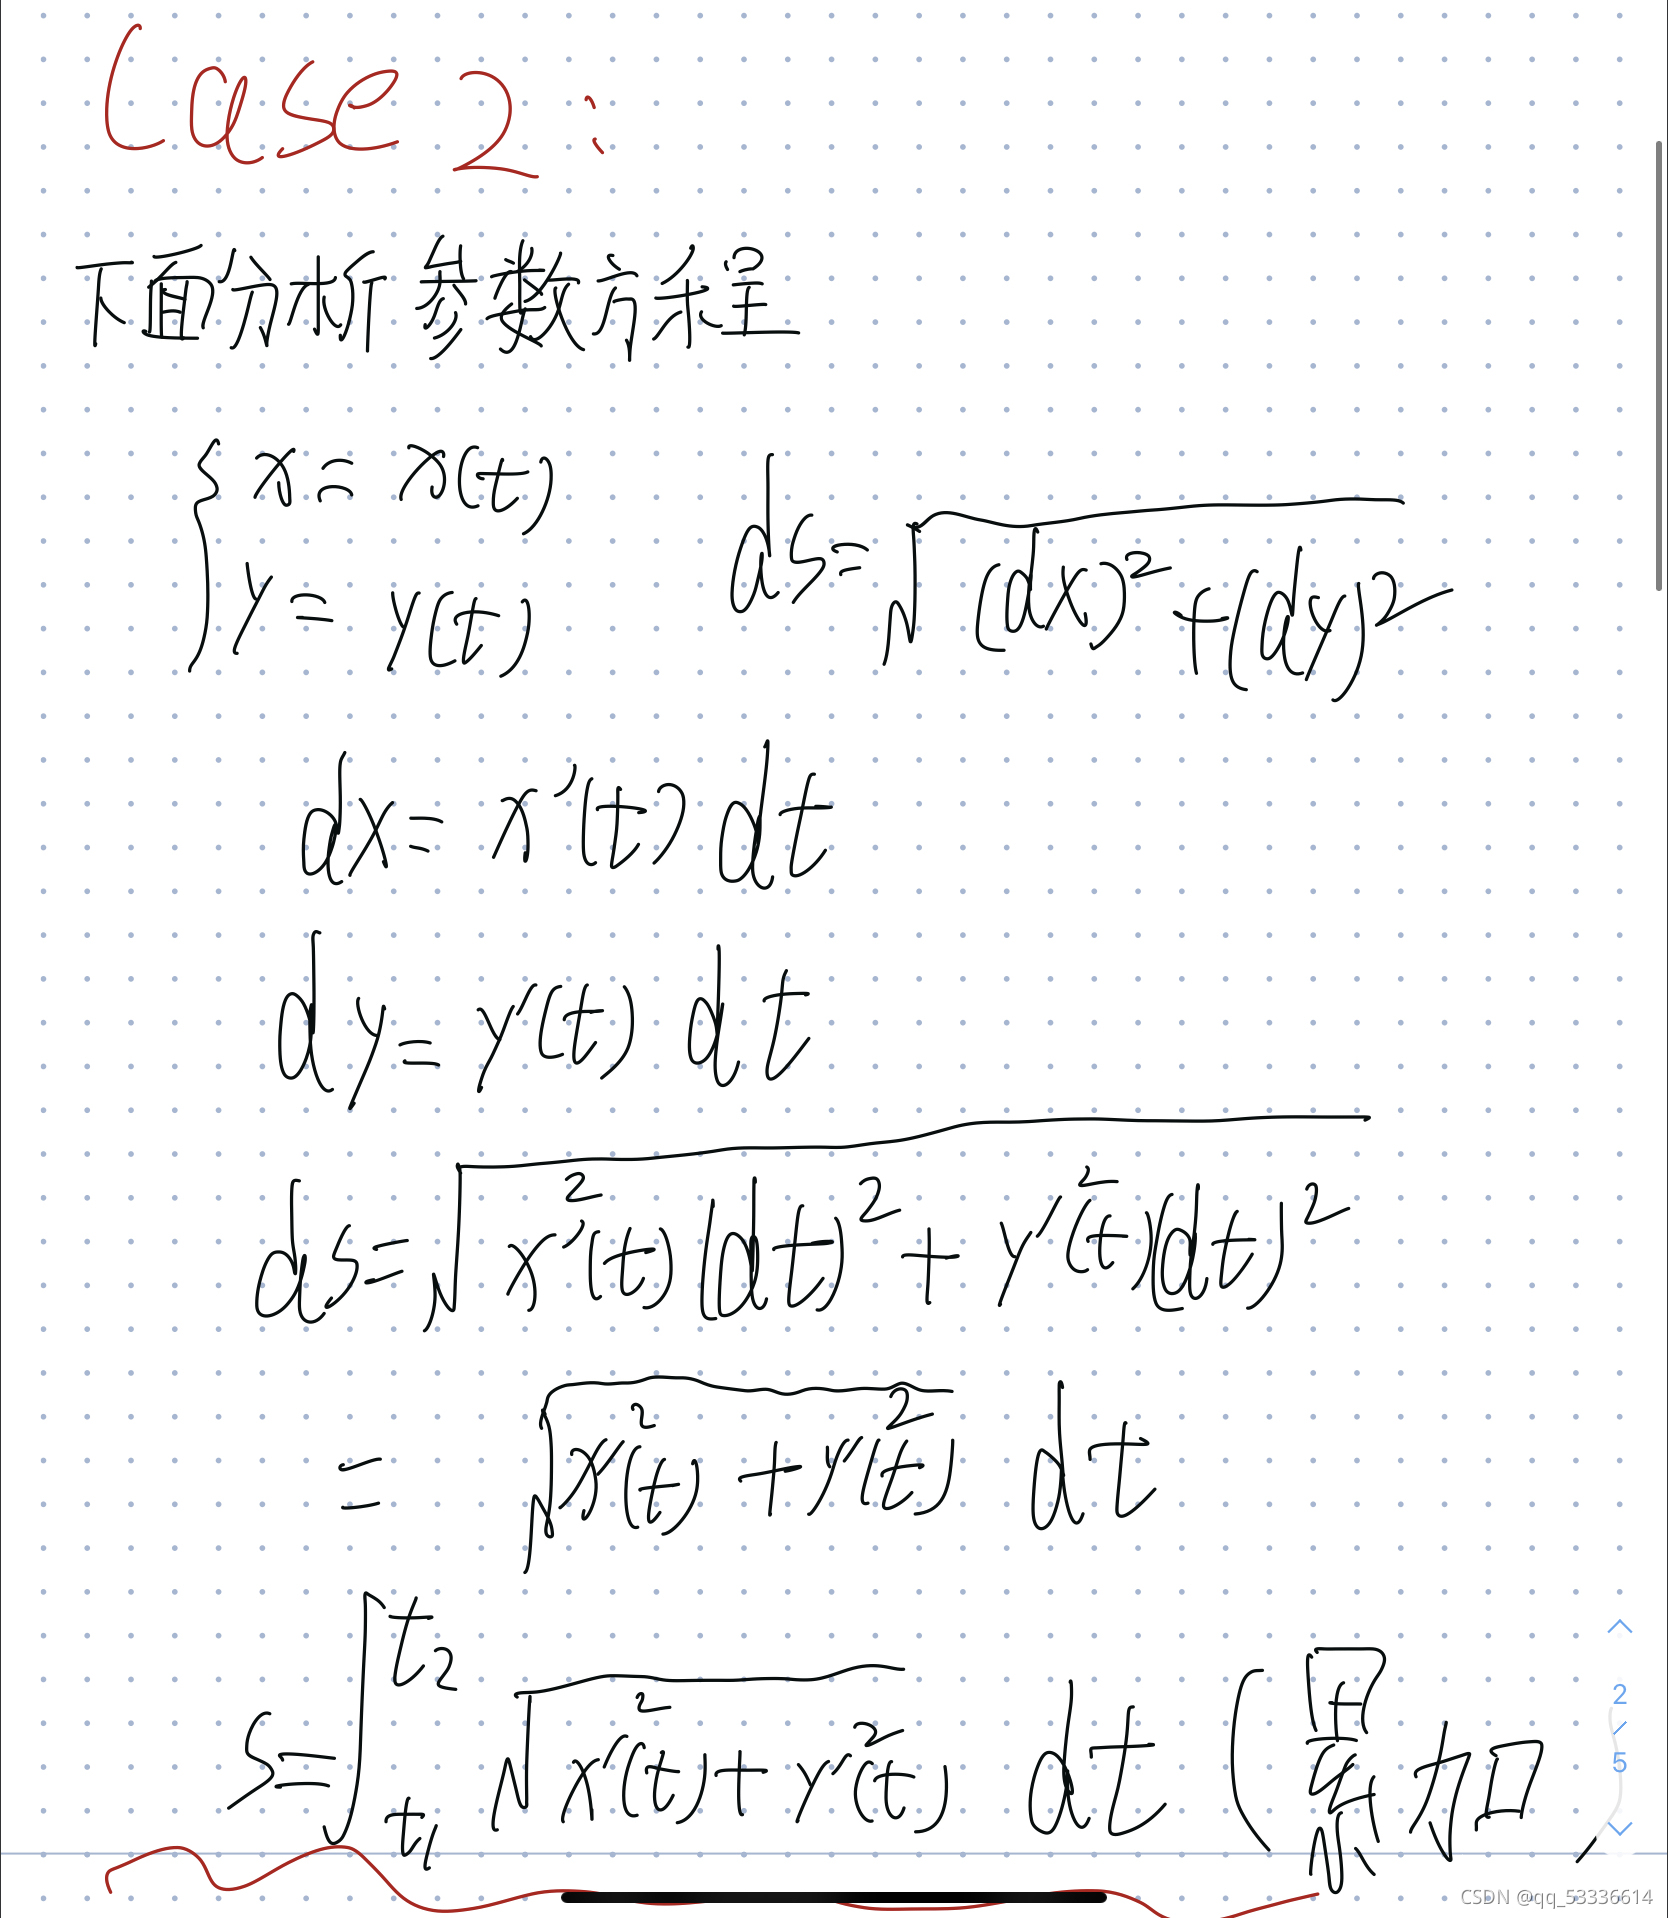 Case 2:
下面分析参数方程
{ x = x(t)
y = y(t)
ds = √((dx)² + (dy)²)
dx = x'(t) dt
dy = y'(t) dt
ds = √(x'²(t)(dt)² + y'²(t)(dt)²)
= √(x'²(t) + y'²(t)) dt
s = ∫_{t₁}^{t₂} √(x'²(t) + y'²(t)) dt (累加)
2
5
CSDN @qq_53336614